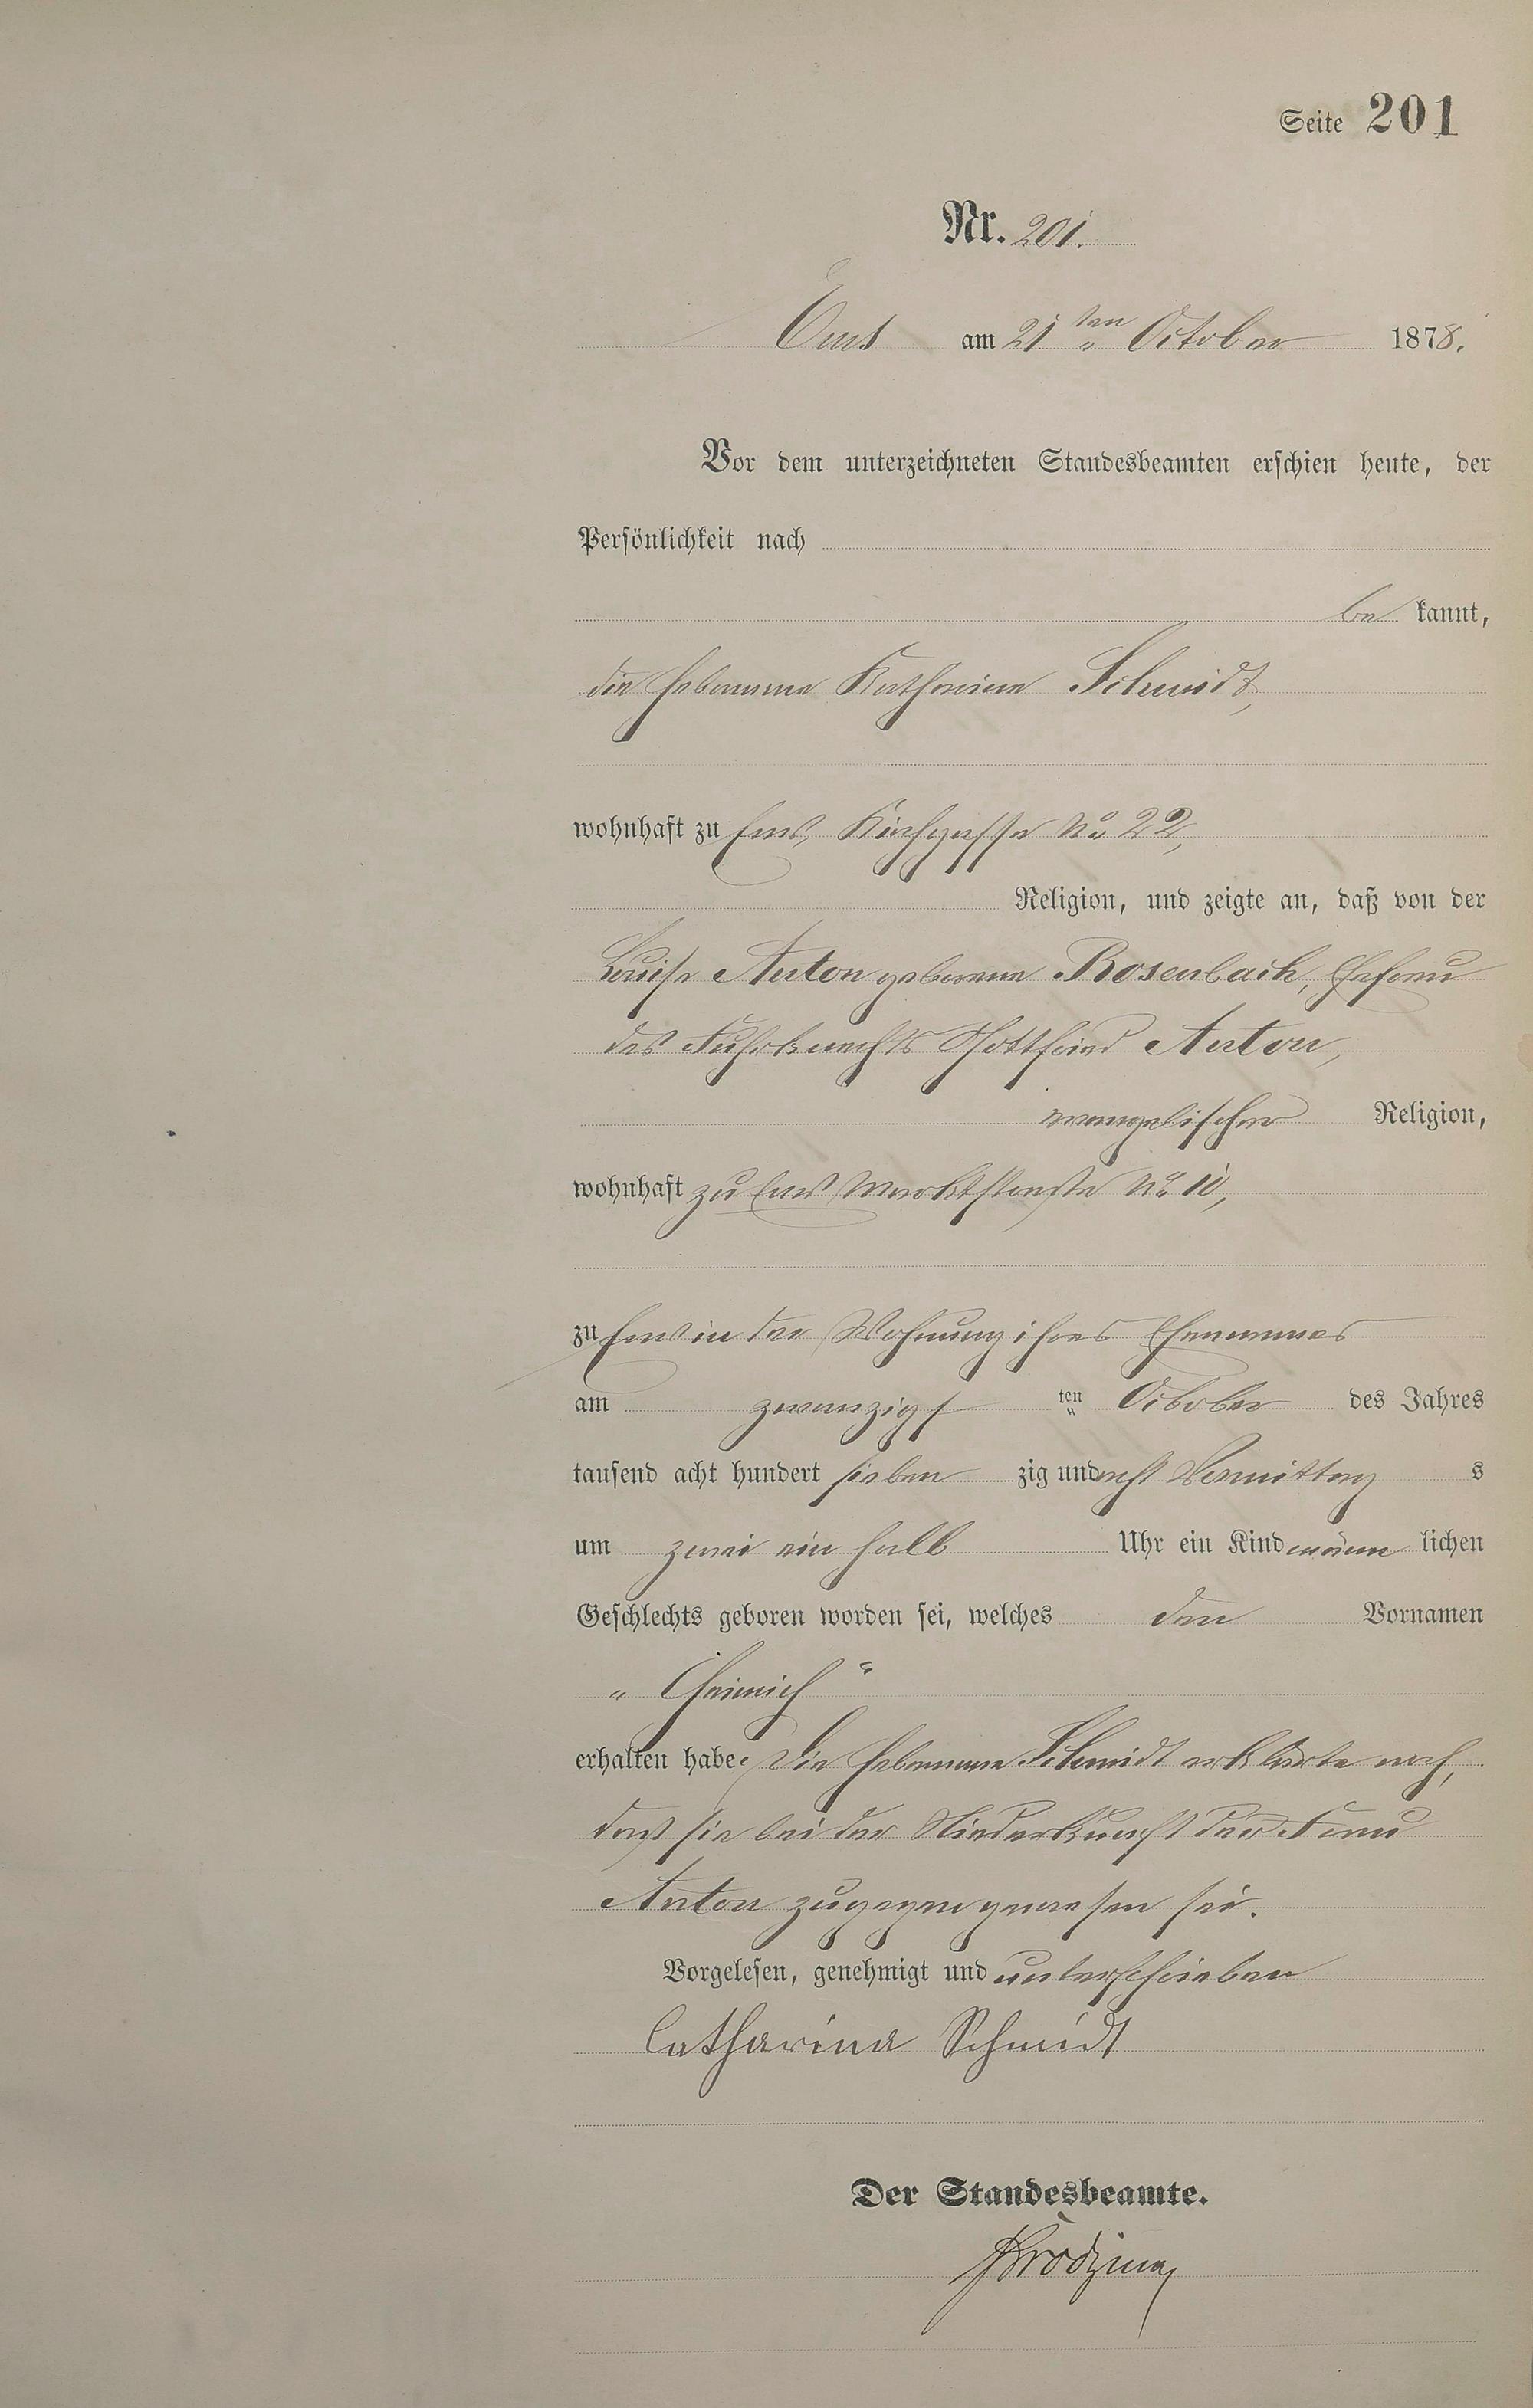 Seite 201
Nr. 201.
Ems am 21ten October 1878.
Vor dem unterzeichneten Standesbeamten erschien heute, der
Persönlichkeit nach
be kannt,
die Hebamme Katharina Schmidt,
wohnhaft zu Ems, Kirchgasse No. 22,
Religion, und zeigte an, daß von der
Louise Anton geborene Rosenbach, Ehefrau
des Fuhrknechts Gottfried Anton,
evangelischer Religion,
wohnhaft zu Ems Marktstraße No. 10,
zu Ems in der Wohnung ihres Ehemannes
am zwanzigs ten October des Jahres
tausend acht hundert sieben zig und acht Vormittag s
um zwei ein halb Uhr ein Kind männ lichen
Geschlechts geboren worden sei, welches den Vornamen
„Heinrich“
erhalten habe. Die Hebamme Schmidt erklärte noch,
daß sie bei der Niederkunft der Frau
Anton zugegen gewesen sei.
Vorgelesen, genehmigt und unterschrieben
Catharina Schmidt
Der Standesbeamte.